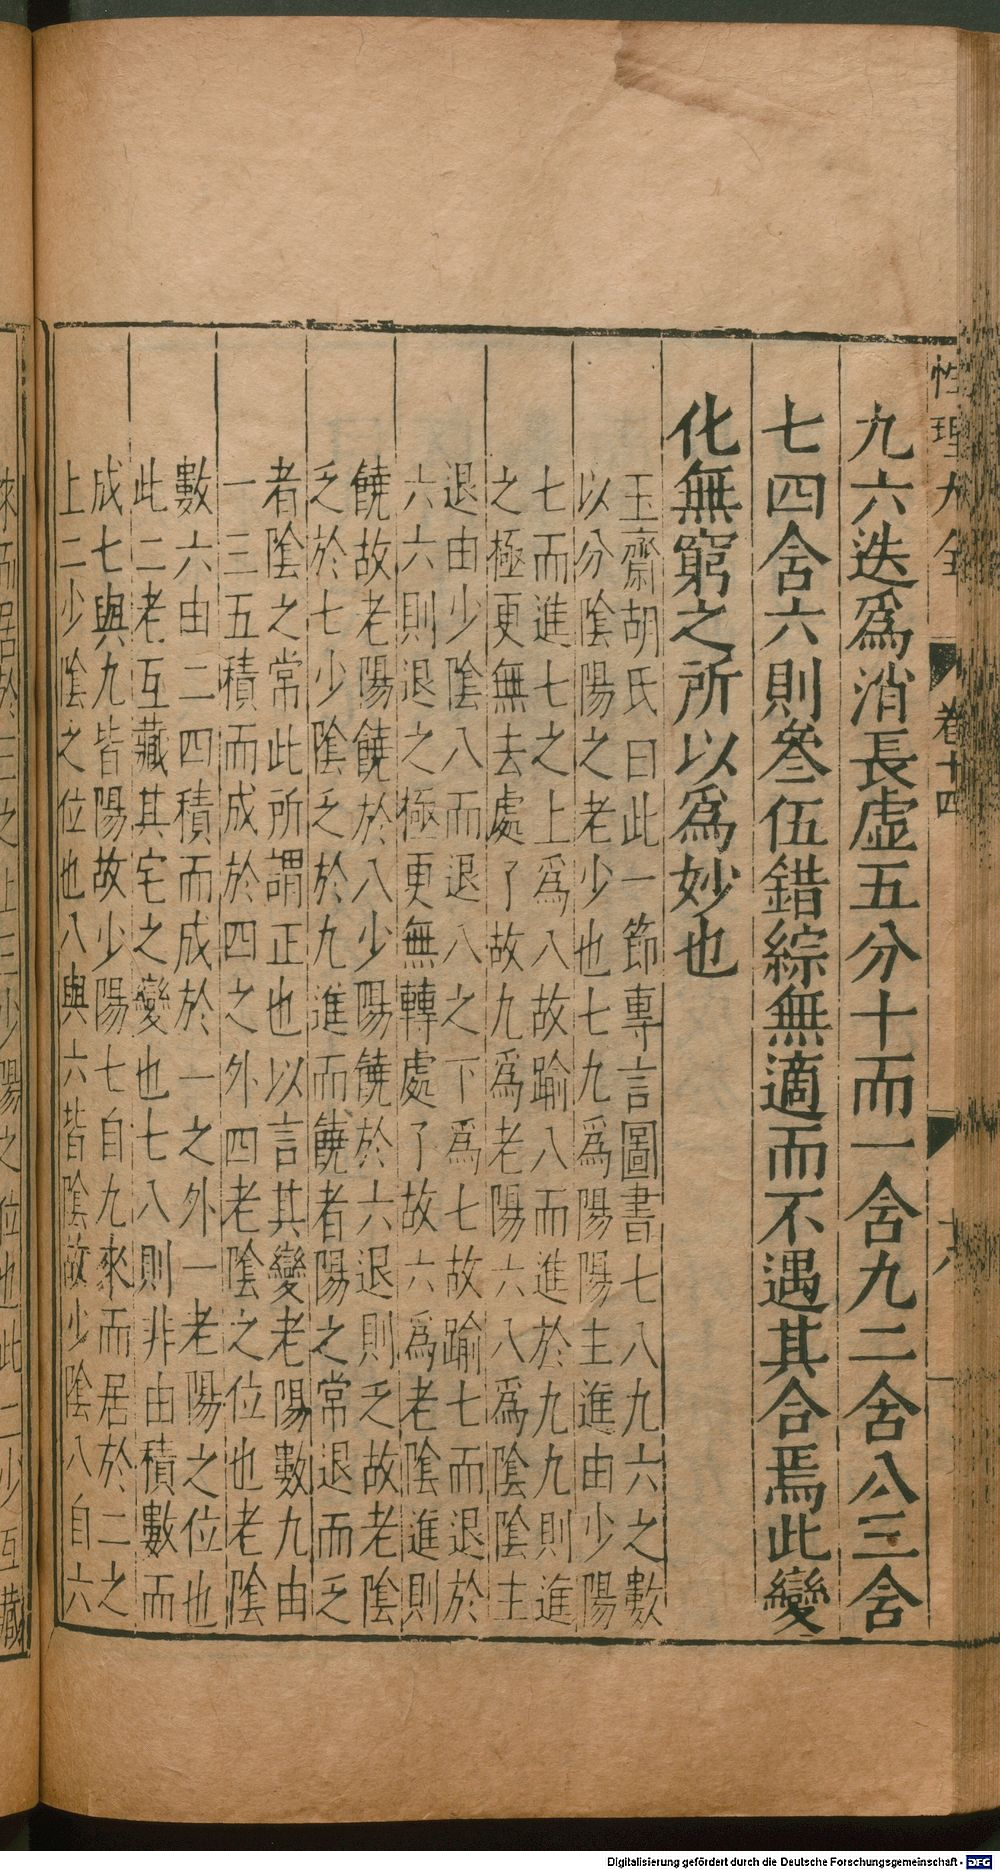 性理大全 卷十四
九六迭爲消長虛五分十而一舍九二舍八三舍
七四舍六則叅伍錯綜無適而不遇其合焉此變
化無窮之所以爲妙也
玉齋胡氏曰此一節專言圖書七八九六之數
以分隂陽之老少也七九爲陽陽主進由少陽
七而進七之上爲八故踰八而進於九九則進
之極更無去處了故九爲老陽六八爲隂隂主
退由少隂八而退八之下爲七故踰七而退於
六六則退之極更無轉處了故六爲老隂進則
饒故老陽饒於八少陽饒於六退則乏故老隂
乏於七少隂乏於九進而饒者陽之常退而乏
者隂之常此所謂正也以言其變老陽數九由
一三五積而成於四之外四老隂之位也老隂
數六由二四積而成於一之外一老陽之位也
此二老互藏其宅之變也七八則非由積數而
成七與九皆陽故少陽七自九來而居於二之
上二少隂之位也八與六皆隂故少隂八自六
Digitalisierung gefördert durch die Deutsche Forschungsgemeinschaft - DFG